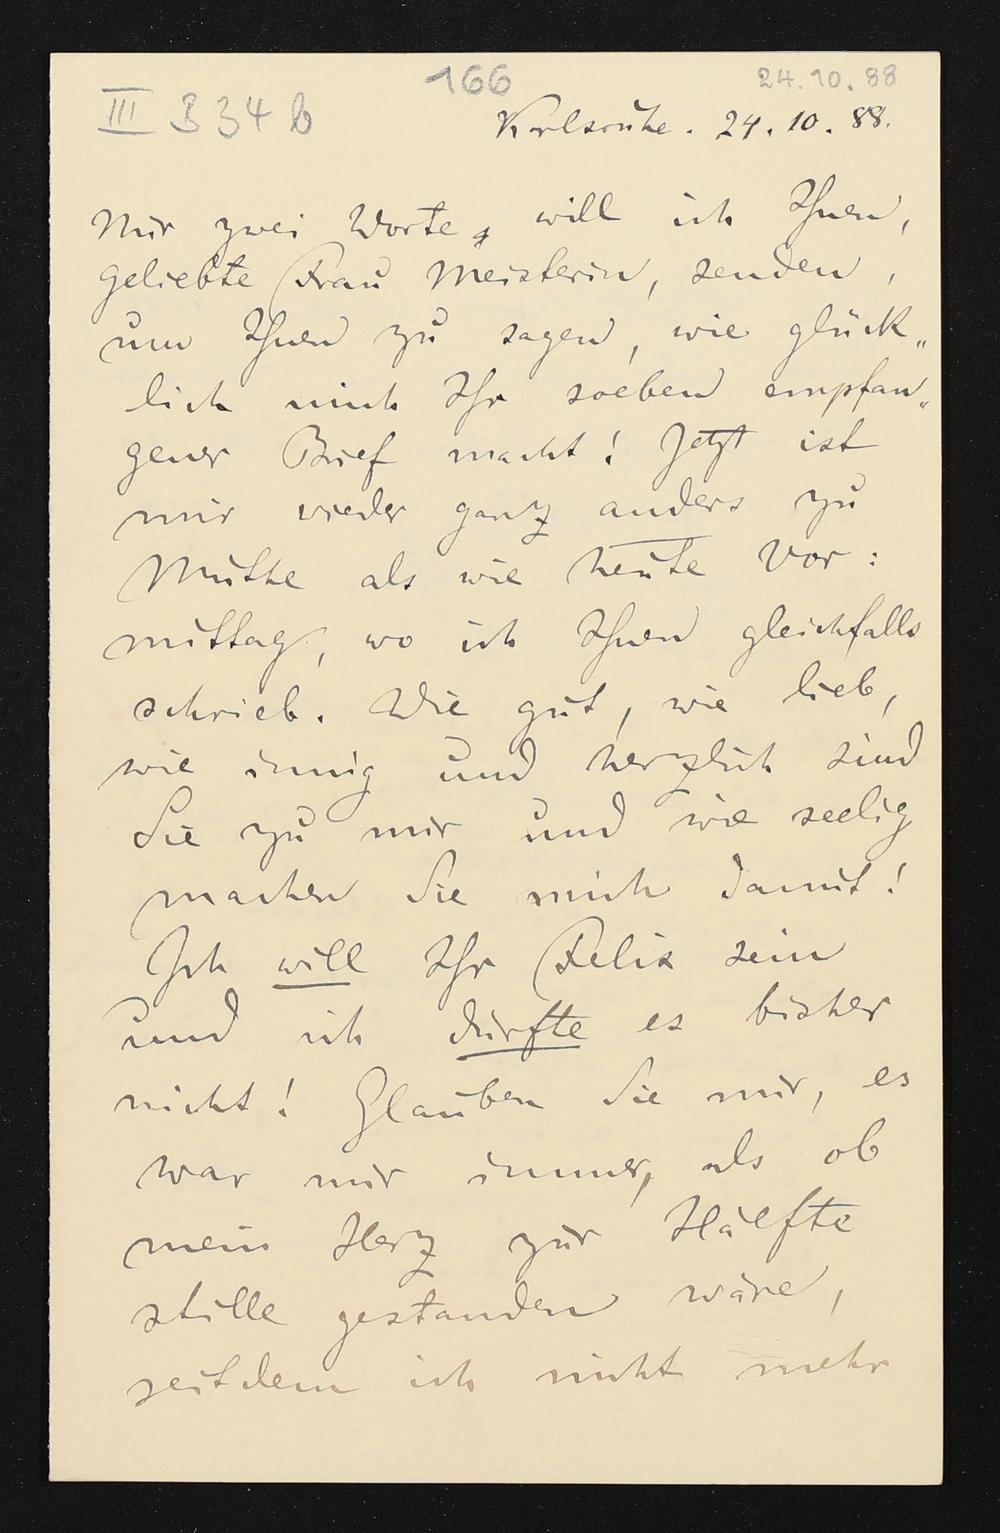 166
24.10.88
III B 34 b
Karlsruhe. 24. 10. 88.
Nur zwei Worte, will ich Ihnen,
geliebte Frau Meisterin, senden,
um Ihnen zu sagen, wie glück„
lich mich Ihr soeben empfan„
gener Brief macht! Jetzt ist
mir wieder ganz anders zu
Muthe als wie heute Vor:
mittag, wo ich Ihnen gleichfalls
schrieb. Wie gut, wie lieb,
wie innig und herzlich sind
Sie zu mir und wie seelig
machen Sie mich damit!
Ich will Ihr Felix sein
und ich durfte es bisher
nicht! Glauben Sie mir, es
war mir immer, als ob
mein Herz zur Hälfte
stille gestanden wäre,
seitdem ich nicht mehr